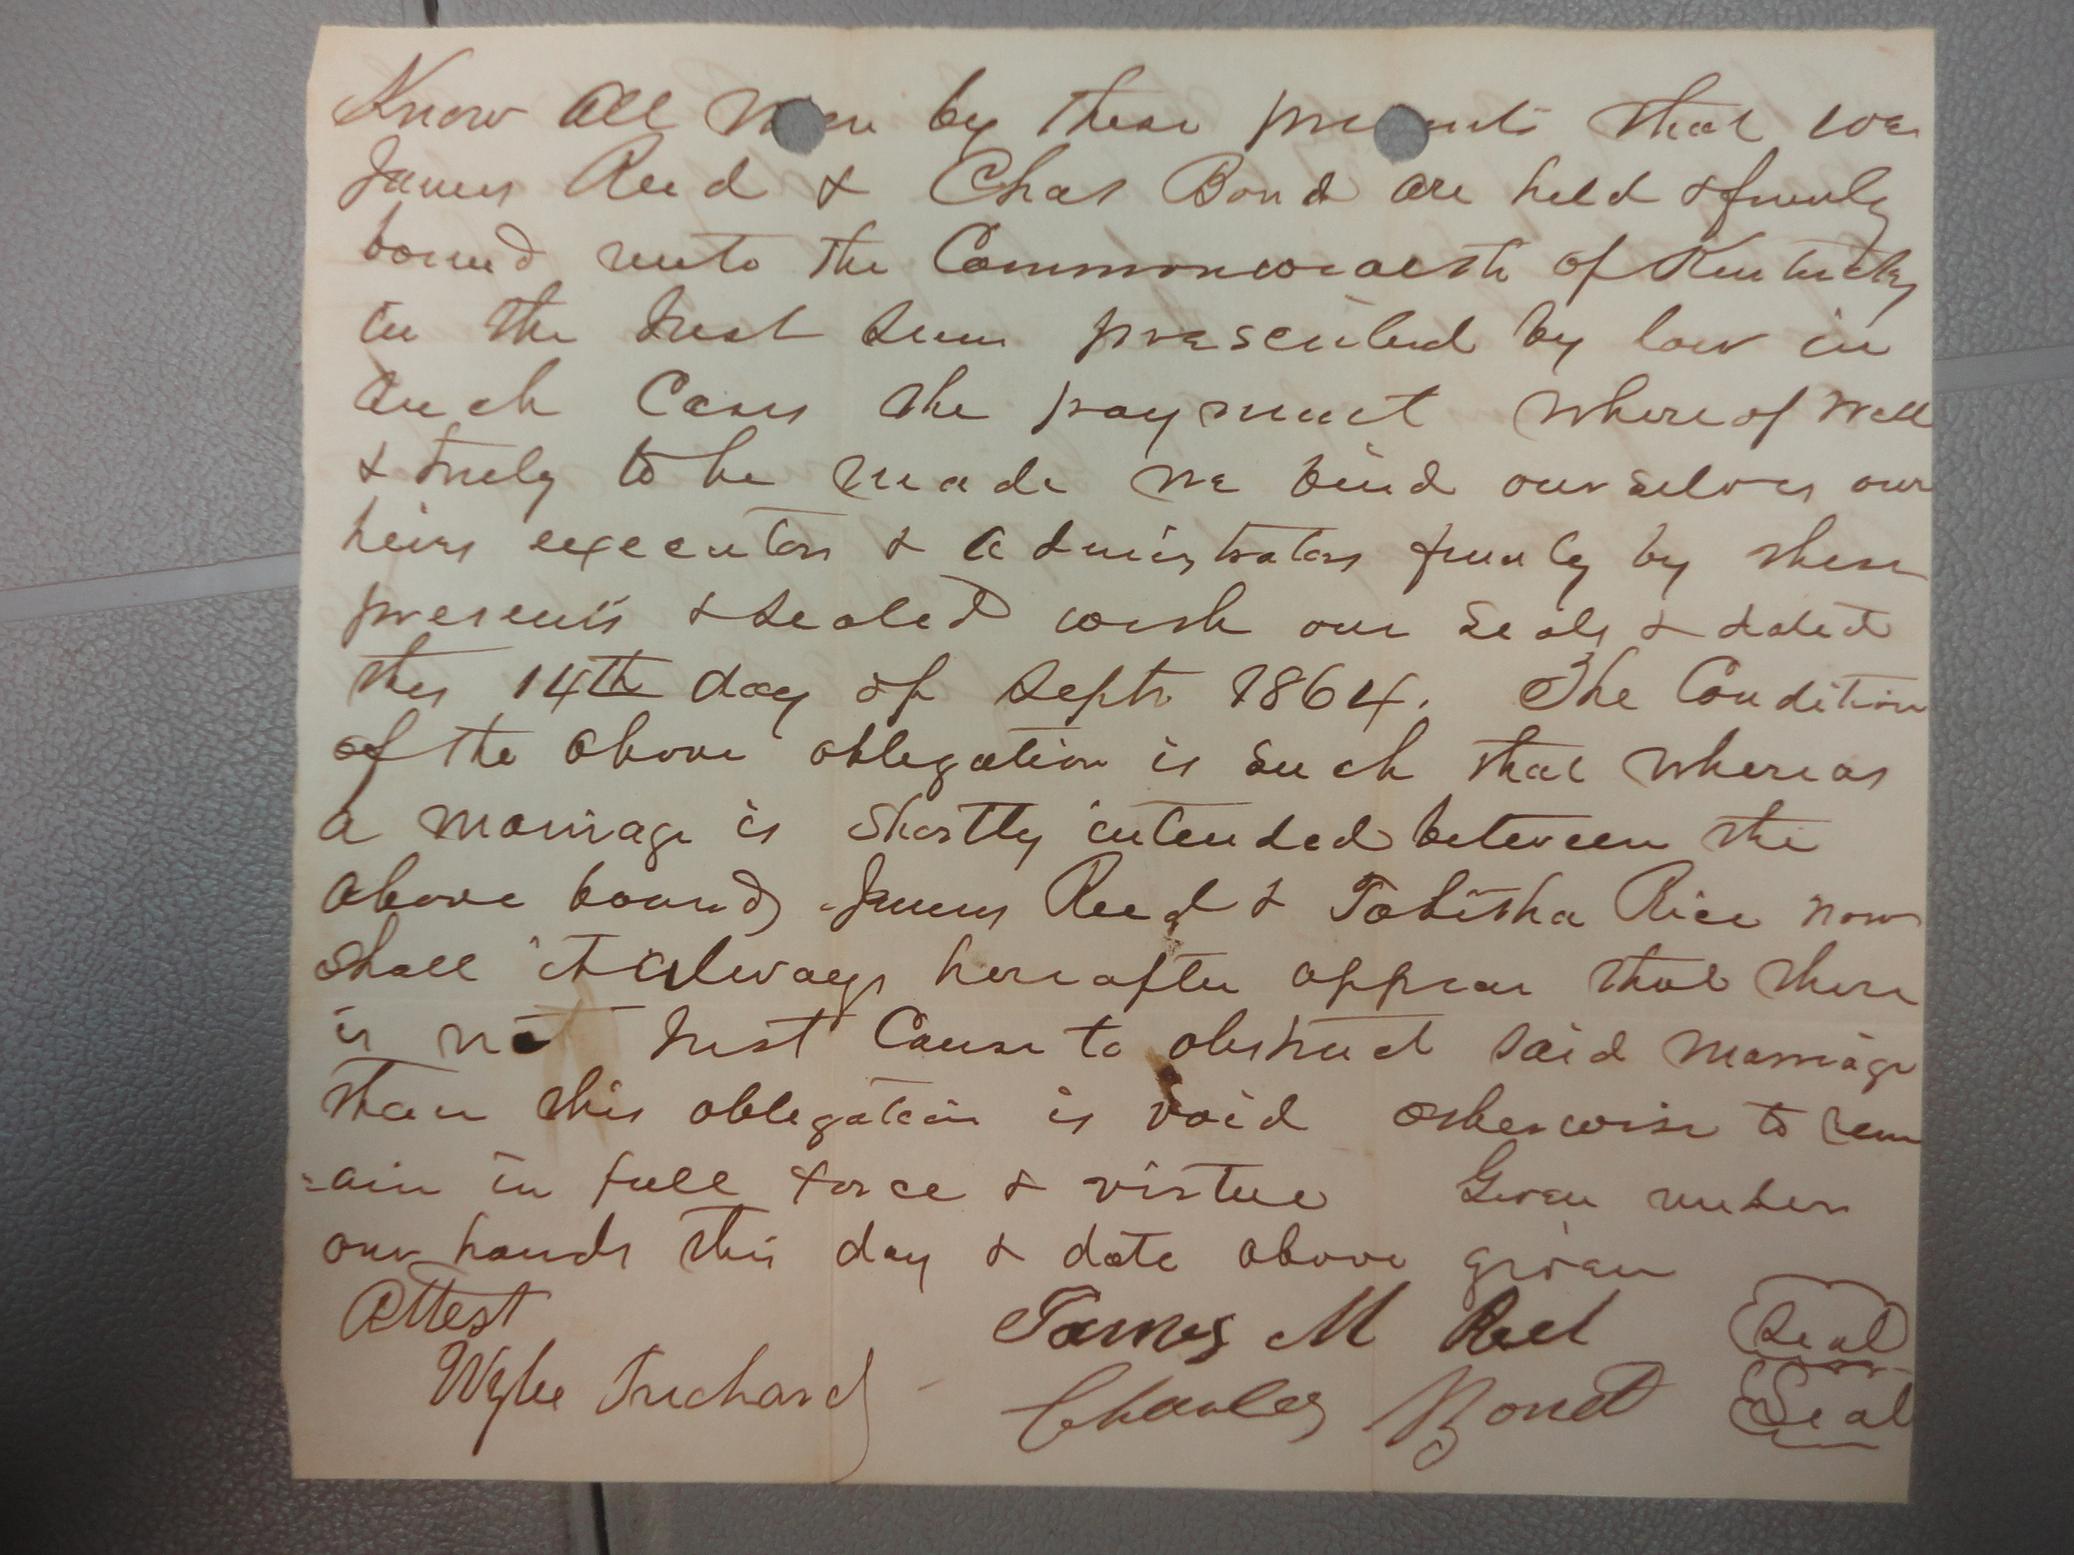 Know all Men by these presents that we
James Reed & Chas Bond are held & firmly
bound unto the Commonwealth of Kentucky
in the Just sum prescribed by law in
such Cases the payment where of well
& truly to be made we bind ourselves our
heirs executors & administrators firmly by these
presents & sealed with our seals & dated
this 14th day of Septr 1864. The Condition
of the above obligation is such that whereas
a marriage is shortly intended between the
above bound James Reed & Tabitha Rice now
shall it always hereafter appear that there
is not Just Cause to obstruct said marriage
then this obligation is void otherwise to rem
=ain in full force & virtue Given under
our hands this day & date above given
Attest James M Reed Seal
Wylie Charles Bond Seal